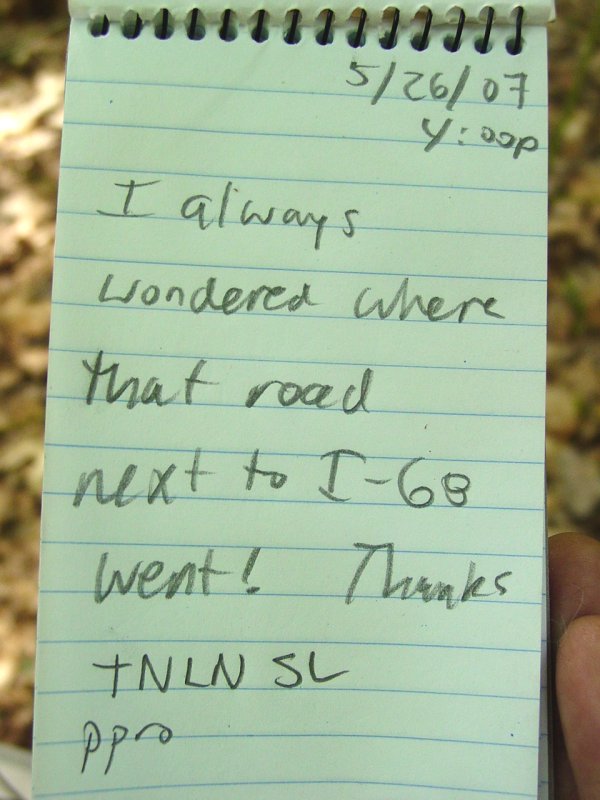 5/26/07
4:00p
I always
wondered where
that road
next to I-68
went! Thanks
TNLN SL
ppro